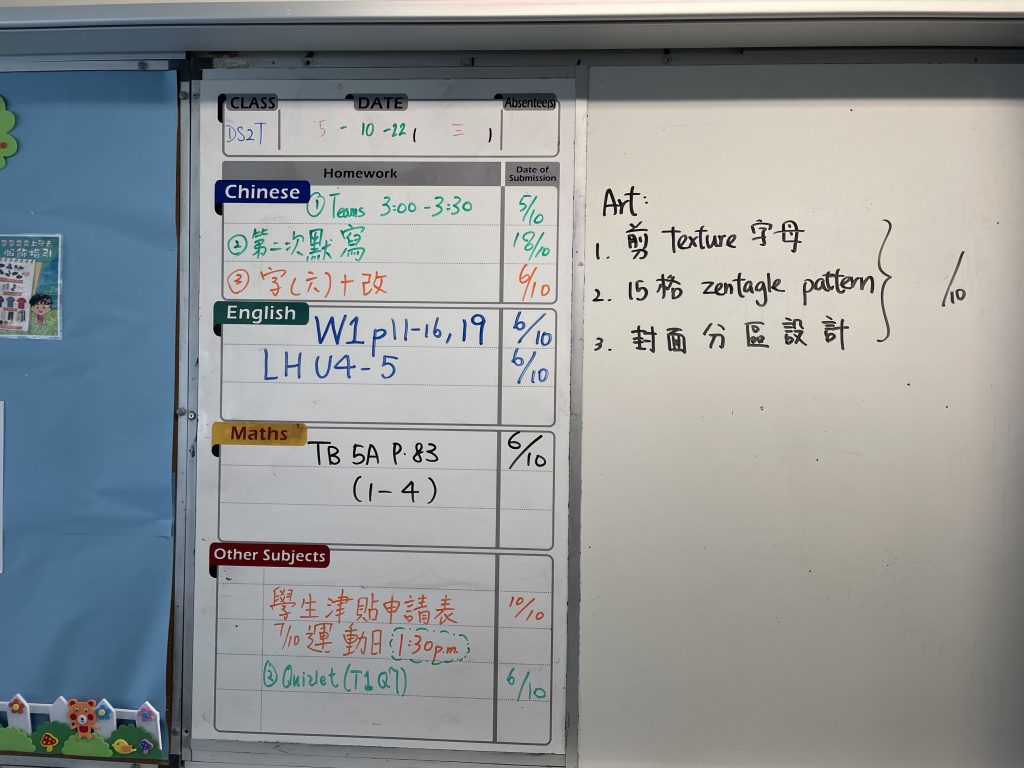 CLASS DATE Absentee(s)
DS2T 5-10-22 ( 三 )
Homework Date of Submission
Chinese
① Teams 3:00-3:30 5/10
② 第二次默寫 18/10
③ 字(六)+改 6/10
English
W1 p11-16, 19 6/10
LH U4-5 6/10
Maths
TB 5A P.83 6/10
(1-4)
Other Subjects
學生津貼申請表 10/10
7/10 運動日 1:30p.m.
Quizlet (T1Q7) 6/10
Art:
1. 剪 texture 字母
2. 15格 zentagle pattern /10
3. 封面分區設計
服飾指引